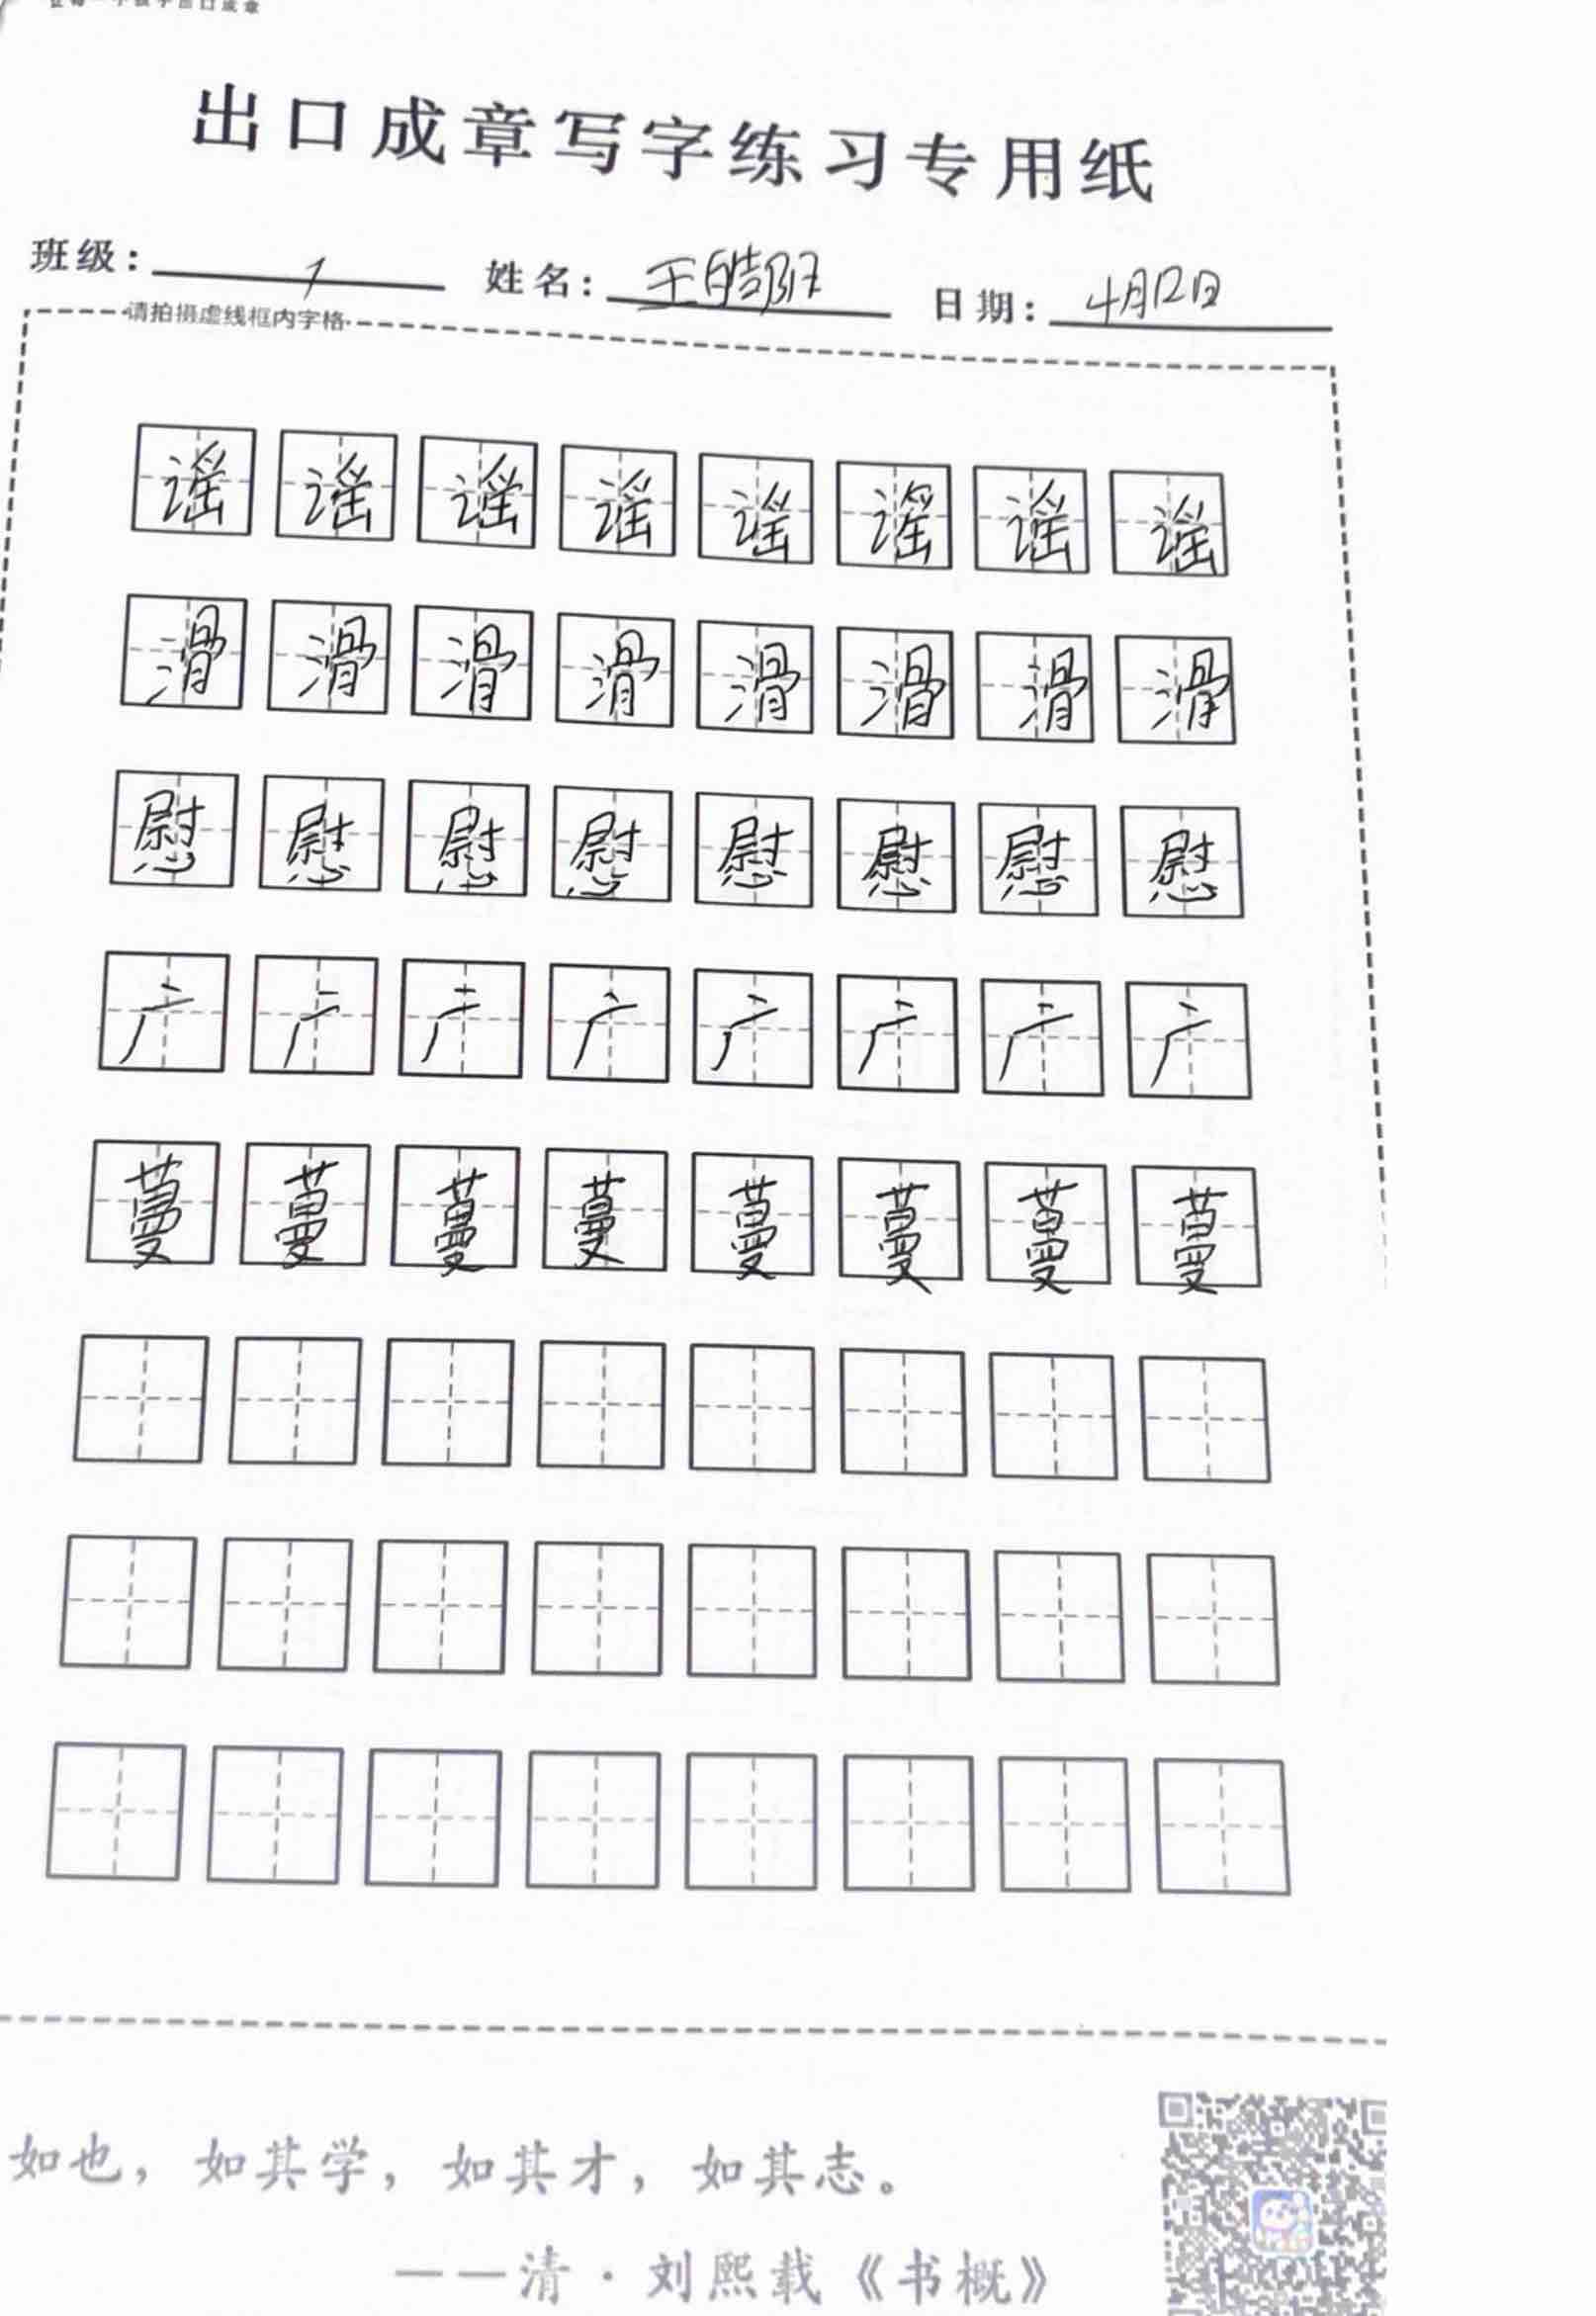 出口成章写字练习专用纸
班级: 1 姓名: 王皓 日期: 4月12日
请拍摄虚线框内字格
谣 谣 谣 谣 谣 谣 谣 谣
滑 滑 滑 滑 滑 滑 滑 滑
慰 慰 慰 慰 慰 慰 慰 慰
广 广 广 广 广 广 广 广
蔓 蔓 蔓 蔓 蔓 蔓 蔓 蔓
如也，如其学，如其才，如其志。
——清·刘熙载《书概》